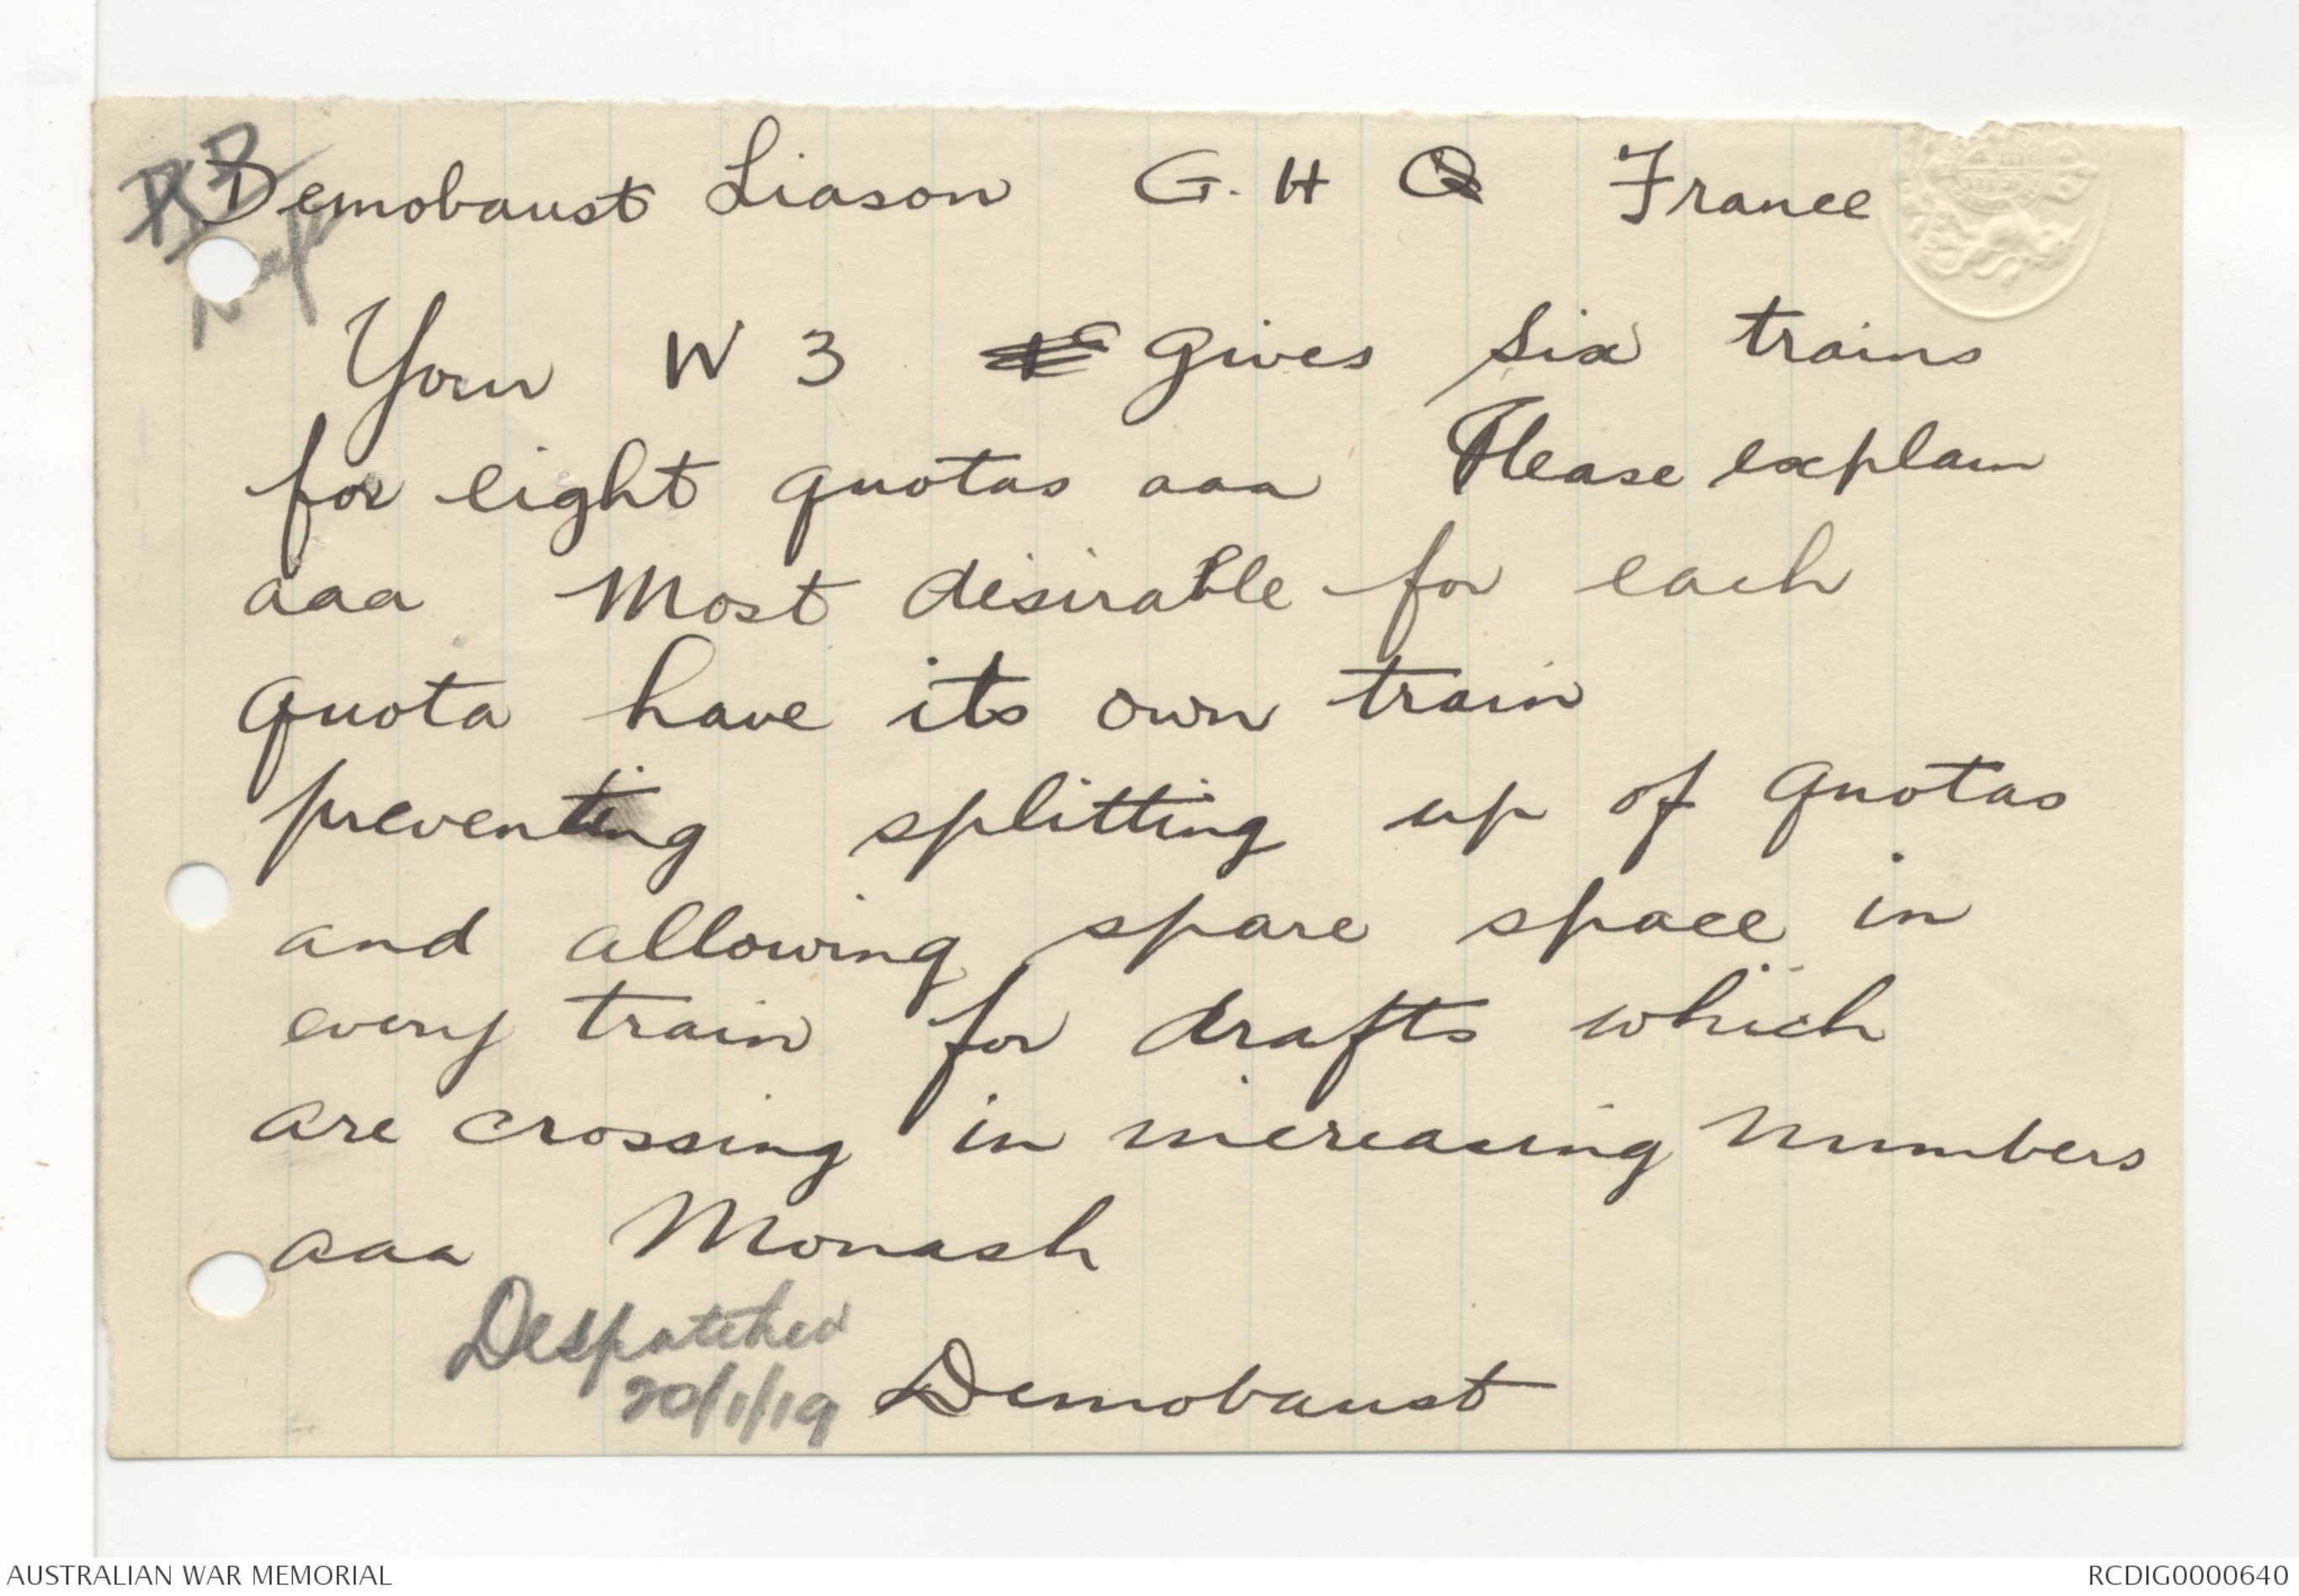 Demobaust Liason G. H Q France
Your W 3 gives six trains
for eight quotas aaa Please explain
aaa Most desirable for each
quota have its own train
preventing splitting up of quotas
and allowing spare space in
every train for drafts which
are crossing in increasing numbers
aaa Monash
Despatched
20/1/19 Demobaust
AUSTRALIAN WAR MEMORIAL RCDIG0000640